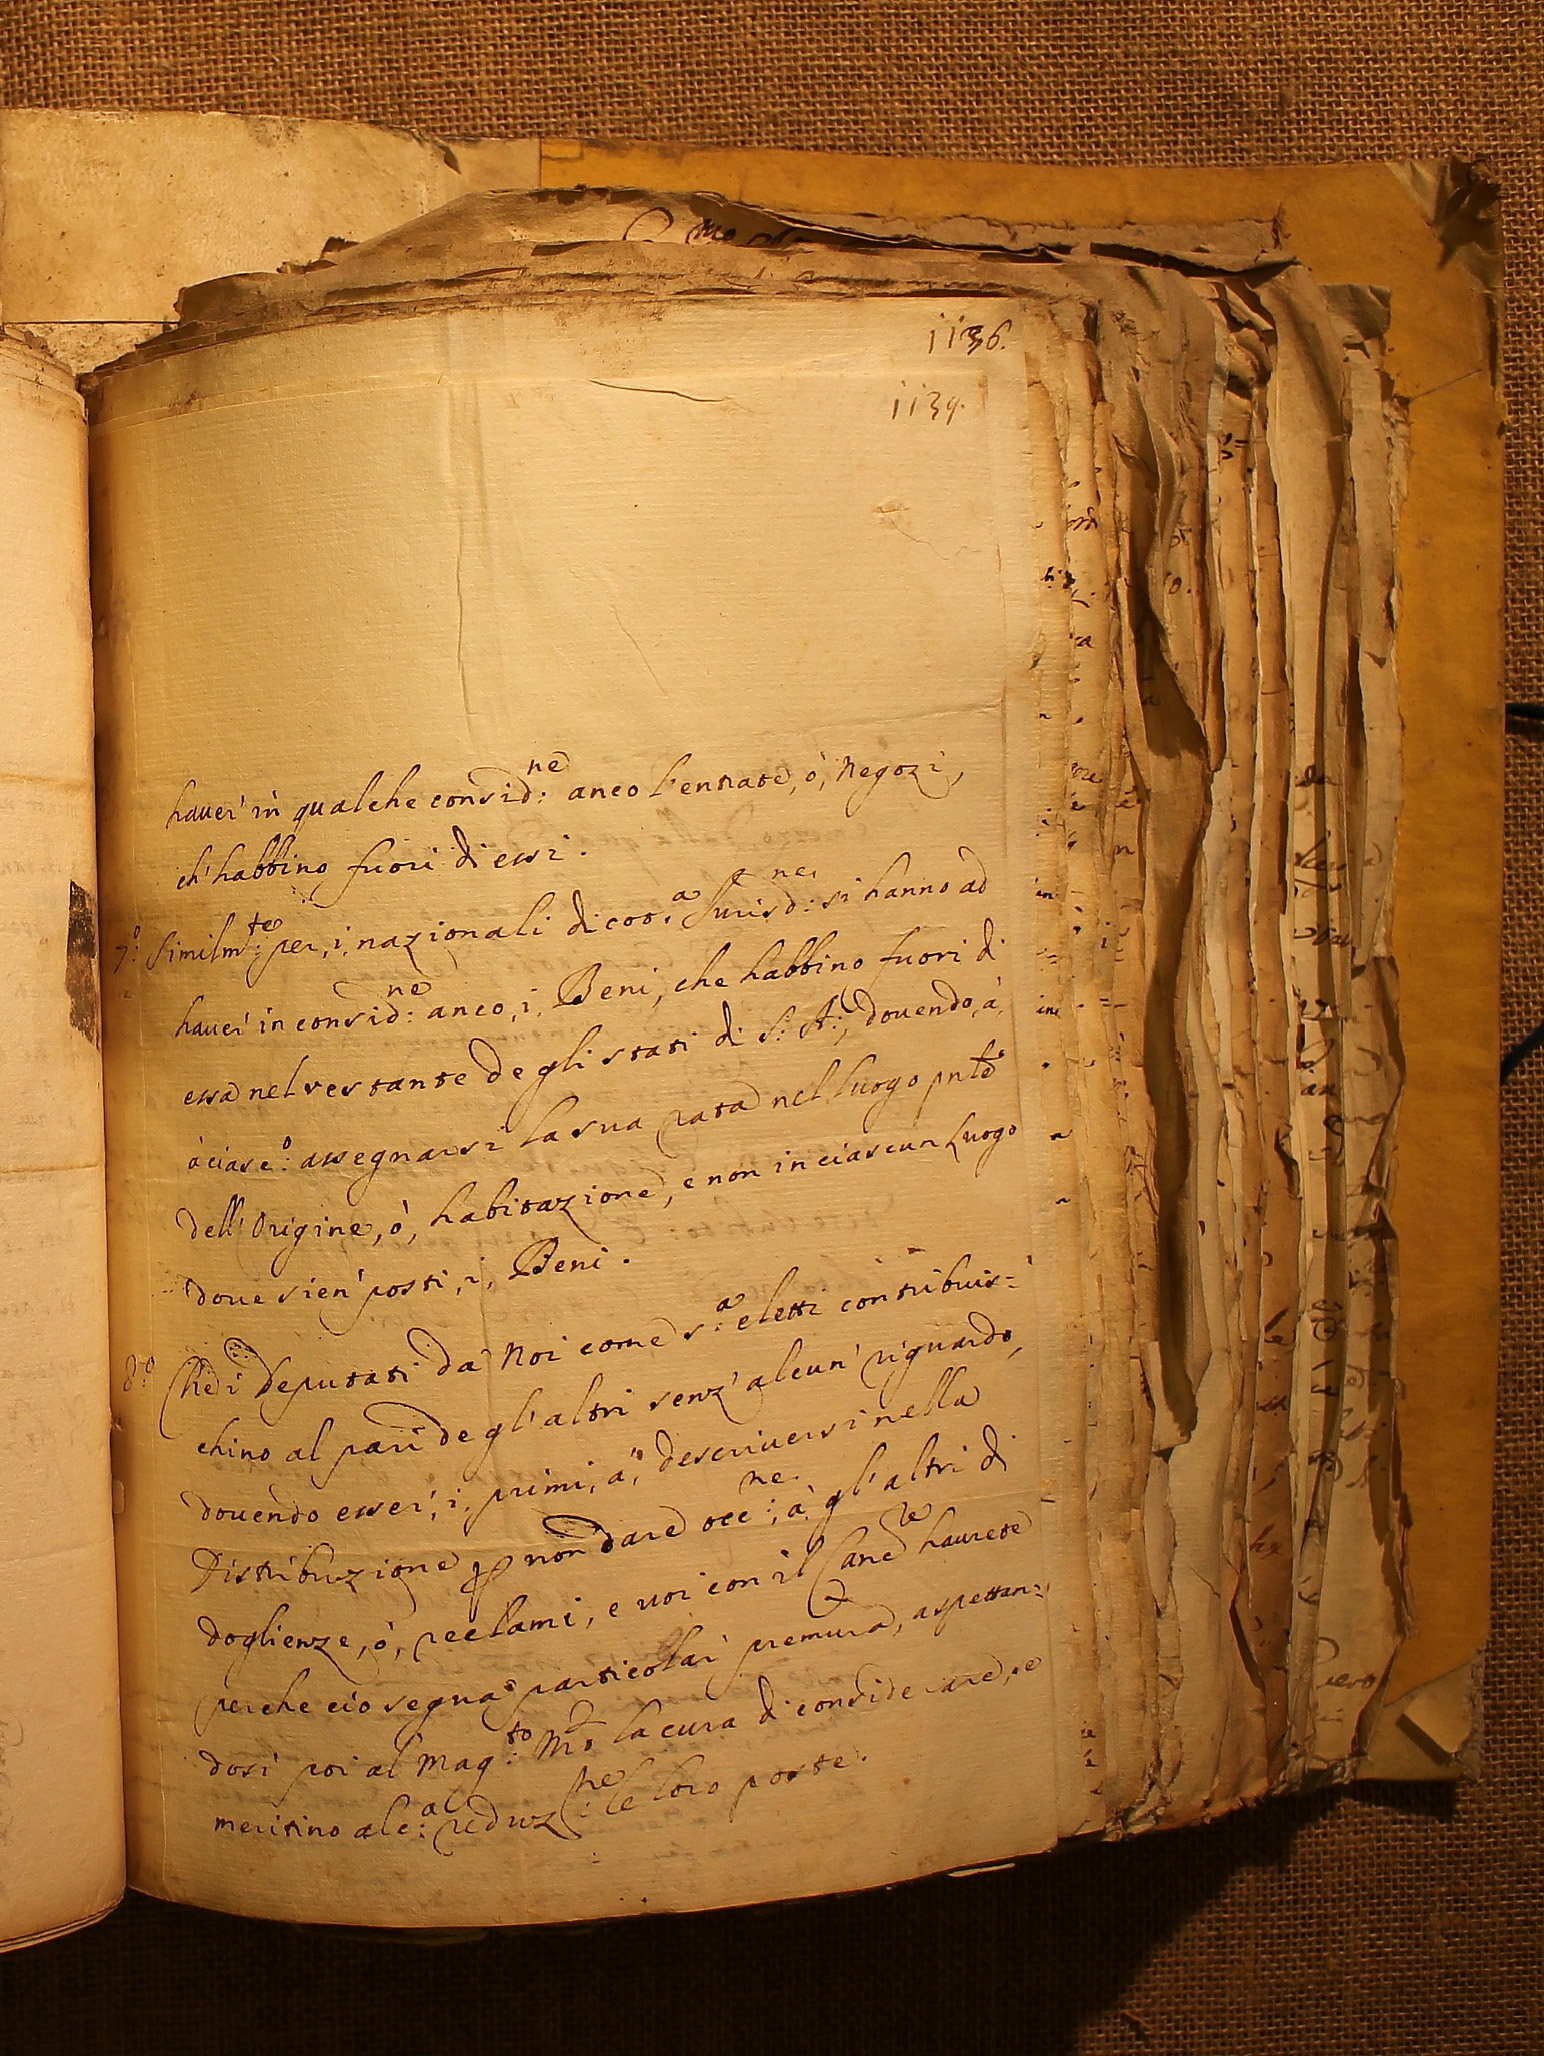 1136.
1139.
haver' in qualche consid:ne anco l'entrate, ò, Negozi,
ch'habbino fuori di essi.
7:o Similm:te per, i, nazionali di cot.a Jurisd:ne si hanno ad
haver' in consid:ne anco, i, Beni, che habbino fuori di
essa nel restante degli stati di S: A:, dovendo, à,
à ciasc:o assegnarsi la sua rata nel luogo pnte
dell'Origine, ò, habitazione, e non in ciascun Luogo
dove sien' posti, i, Beni.
8:o Che i Deputati da Noi come s:a eletti contribuis=
chino al pari degl'altri senz'alcun' riguardo,
dovendo esser', i, primi, a, descriversi nella
Distribuzione p non dare occ:ne, à gl'altri di
doglienze, ò, reclami, e voi con il Canc:re haurete
perche ciò segua particolar premura, aspettan=
dosi poi al Mag:to Mo la cura di considerare, se
meritino alc:a reduz:ne le loro poste.